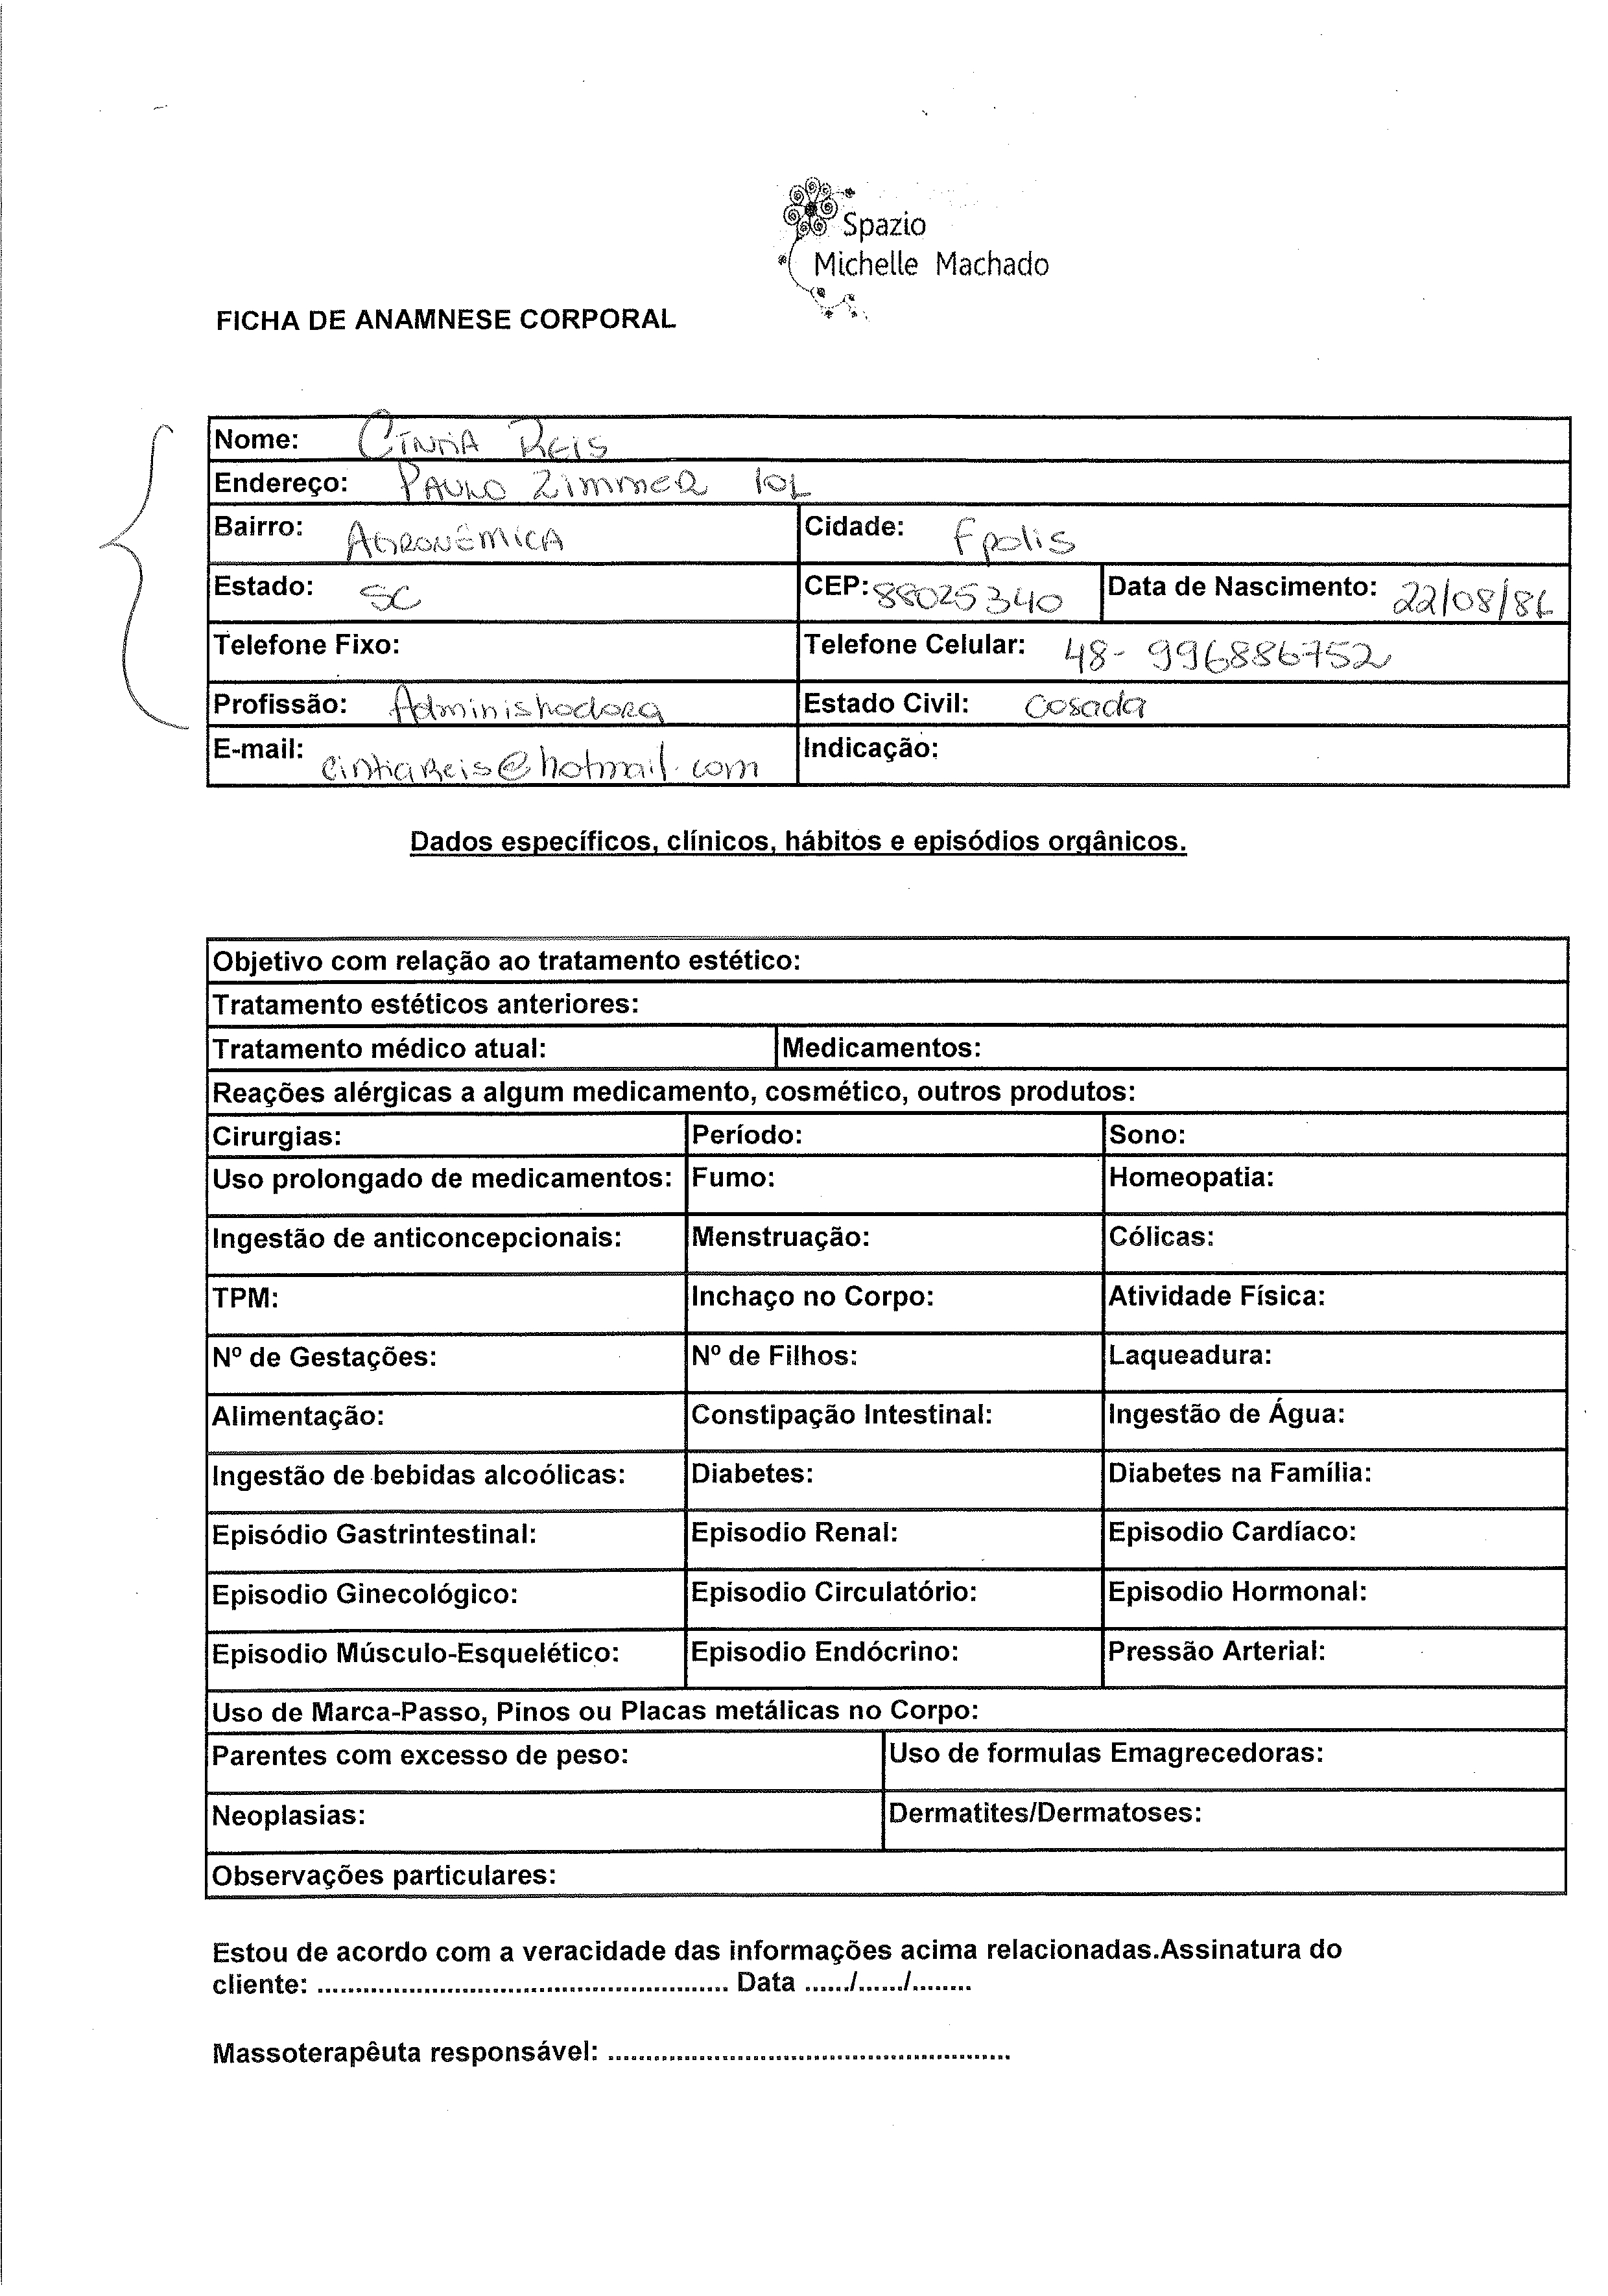 Spazio
Michelle Machado
FICHA DE ANAMNESE CORPORAL
Nome: CINTIA REIS
Endereço: PAULO ZIMMER
Bairro: AGRONÔMICA Cidade: Fpolis
Estado: SC CEP: 88025340 Data de Nascimento: 22/08/86
Telefone Fixo: Telefone Celular: 48- 996886752
Profissão: Administradora Estado Civil: Casada
E-mail: cintiaReis@hotmail.com Indicação:
Dados específicos, clínicos, hábitos e episódios orgânicos.
Objetivo com relação ao tratamento estético:
Tratamento estéticos anteriores:
Tratamento médico atual: Medicamentos:
Reações alérgicas a algum medicamento, cosmético, outros produtos:
Cirurgias: Período: Sono:
Uso prolongado de medicamentos: Fumo: Homeopatia:
Ingestão de anticoncepcionais: Menstruação: Cólicas:
TPM: Inchaço no Corpo: Atividade Física:
Nº de Gestações: Nº de Filhos: Laqueadura:
Alimentação: Constipação Intestinal: Ingestão de Água:
Ingestão de bebidas alcoólicas: Diabetes: Diabetes na Família:
Episódio Gastrintestinal: Episodio Renal: Episodio Cardíaco:
Episodio Ginecológico: Episodio Circulatório: Episodio Hormonal:
Episodio Músculo-Esquelético: Episodio Endócrino: Pressão Arterial:
Uso de Marca-Passo, Pinos ou Placas metálicas no Corpo:
Parentes com excesso de peso: Uso de formulas Emagrecedoras:
Neoplasias: Dermatites/Dermatoses:
Observações particulares:
Estou de acordo com a veracidade das informações acima relacionadas.Assinatura do
cliente: ...................................................... Data ....../....../........
Massoterapêuta responsável: .....................................................